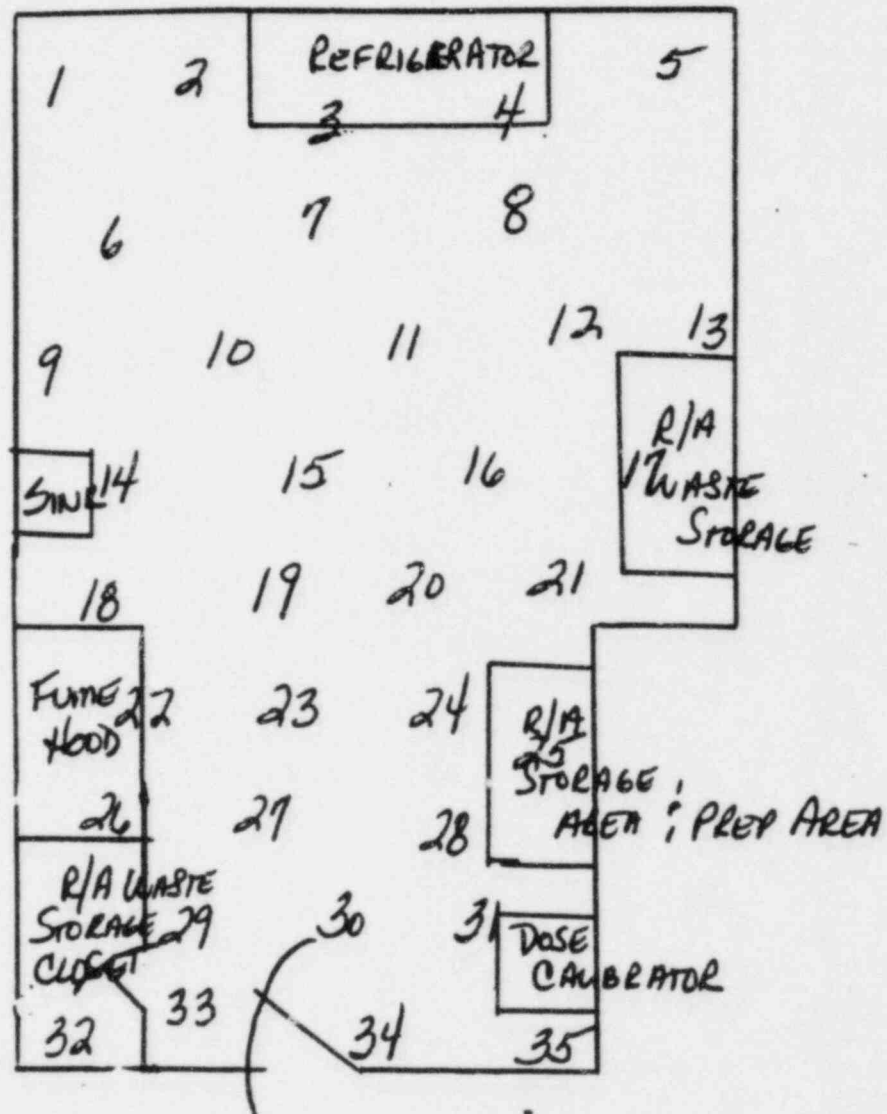 REFRIGERATOR
1 2 3 4 5
6 7 8
9 10 11 12 13
R/A
WASTE
STORAGE
SINK 14 15 16 17
18 19 20 21
FUME
HOOD
22 23 24
R/A
25
STORAGE
AREA & PREP AREA
26 27 28
R/A WASTE
STORAGE
CLOSET
29 30 31
DOSE
CALIBRATOR
32 33 34 35